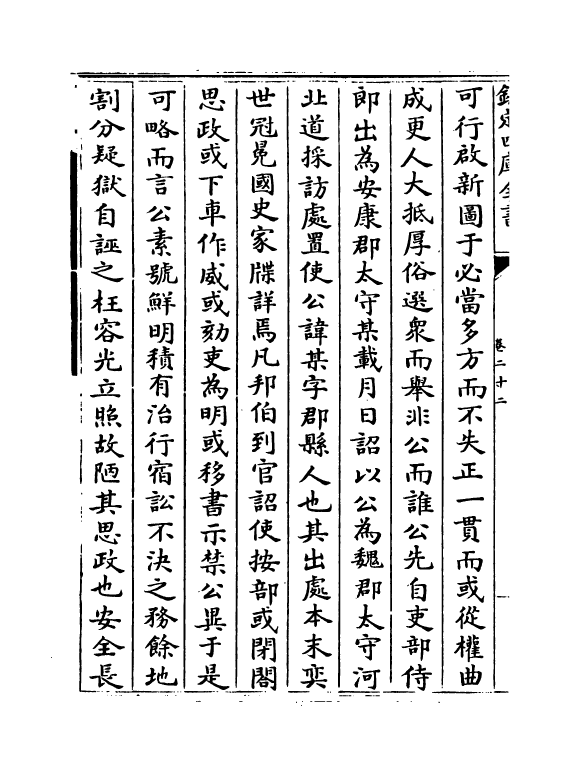 欽定四庫全書
卷二十二
可行啟新圖于必當多方而不失正一貫而或從權曲
成更人大抵厚俗選衆而舉非公而誰公先自吏部侍
郎出為安康郡太守某載月日詔以公為魏郡太守河
北道採訪處置使公諱某字郡縣人也其出處本末奕
世冠冕國史家牒詳焉凡邦伯到官詔使按部或閉閤
思政或下車作威或劾吏為明或移書示禁公異于是
可略而言公素號鮮明積有治行宿訟不決之務餘地
割分疑獄自誣之枉容光立照故陋其思政也安全長